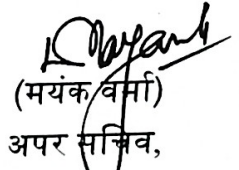 (मयंक वर्मा)
अपर सचिव,